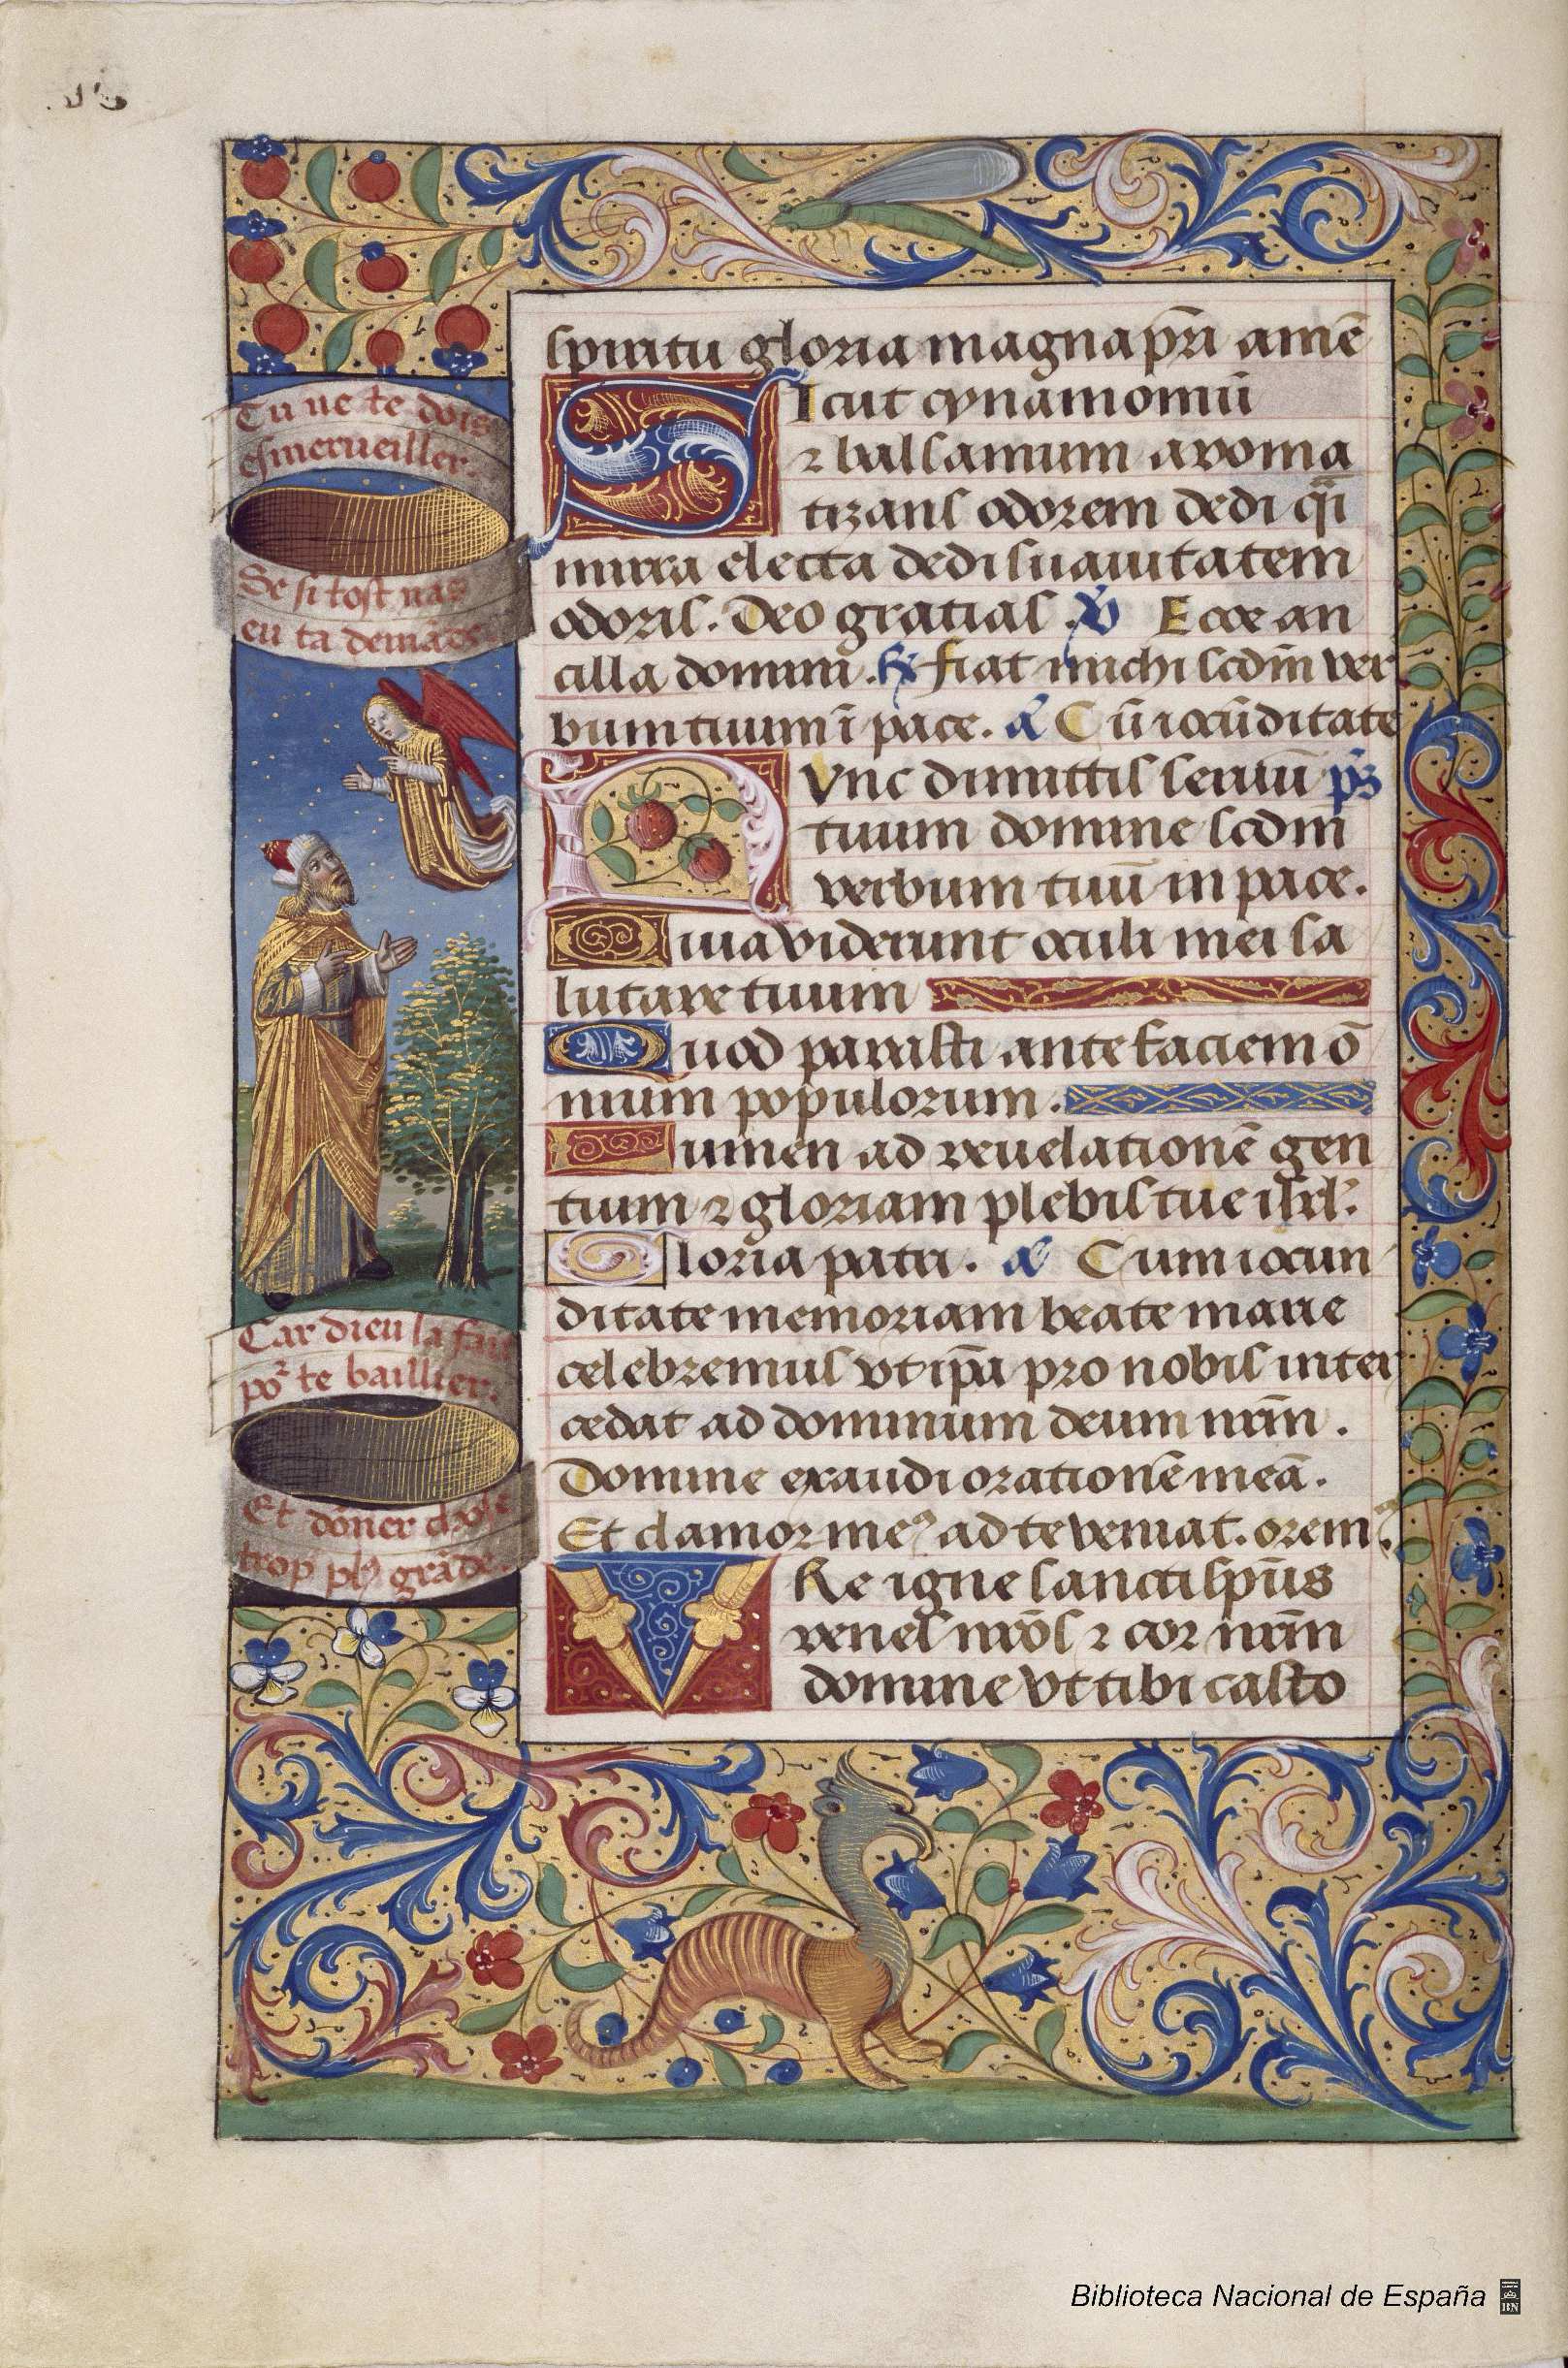 Tu ne te dois
esmerueiller.
Se si tost nas
eu ta demāde
Car dieu la fait
po᷒ te baillier.
Et dōner chose
trop pl᷒ grāde.
spiritu gloria magna pr̄i amē
Sicut cynamomū
⁊ balsamum aroma
tizans odorem dedi q̄i
mirra electa dedi suauitatem
odoris. Deo gratias. ℣ Ecce an
cilla domini. ℟ fiat michi scdm̄ ver
bum tuum ī pace. añ Cū iocūditate
NVnc dimittis seruū ps̄
tuum domine scdm̄
verbum tuū in pace.
Quia viderunt oculi mei sa
lutare tuum
Quod parasti ante faciem ō
nium populorum.
Lumen ad reuelationē gen
tium ⁊ gloriam plebis tue isrl᷒.
Gloria patri. añ Cum iocun
ditate memoriam beate marie
celebremus vt ip̄a pro nobis inter
cedat ad dominum deum nr̄m.
Domine exaudi orationē meā.
Et clamor me᷒ ad te veniat. orem᷒.
VRe igne sancti sp̄us
renes nr̄os ⁊ cor nr̄m
domine vt tibi casto
Biblioteca Nacional de España
BN